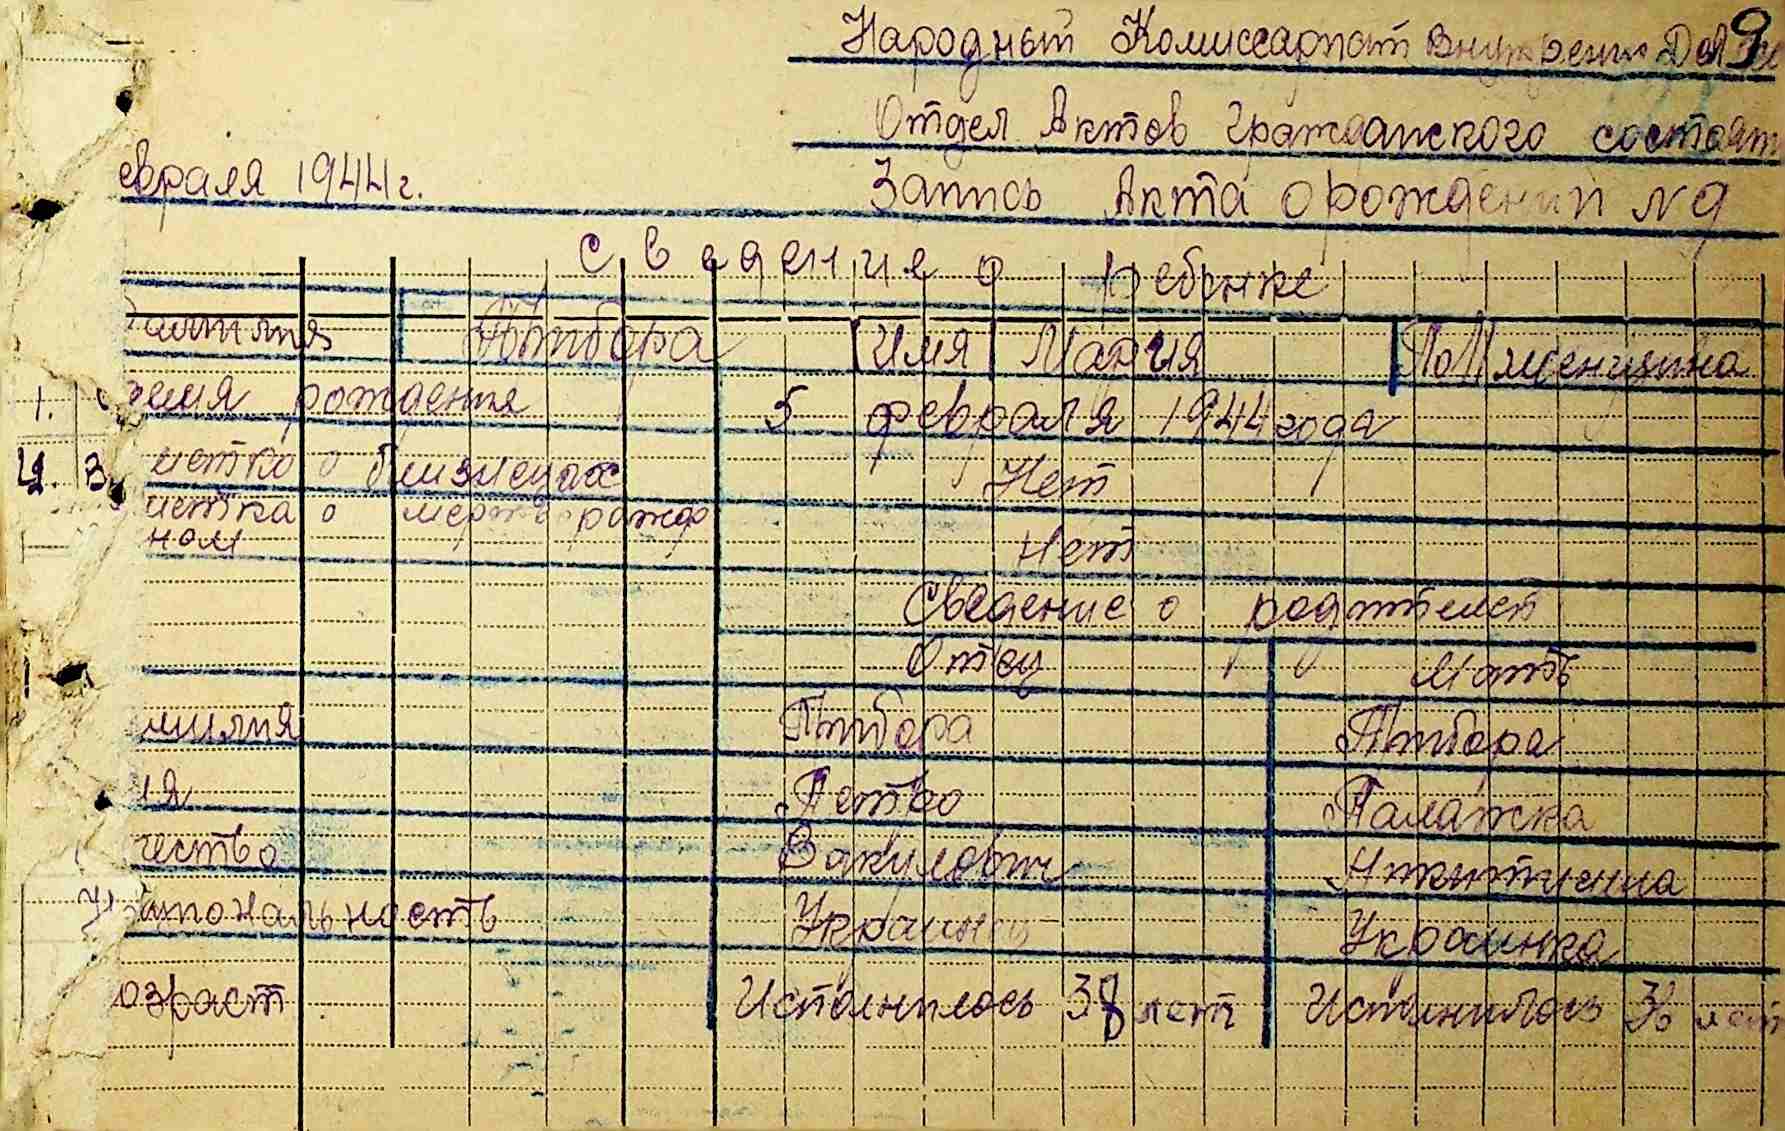 9
Народный Комиссариат Внутрених Дел
Отдел Актов Гражданского состоят
евраля 1944 г.
Запись Акта о рождении N 9
Сведение о Ребенке
амилия Пттбора Имя Мария Пол женщина
1. ремя рождения 5 февраля 1944 года
метко о близнецах Нет
метка о мертворожд
ном Нет
Сведение о родителей
Отец Мать
милия Птибора Птибора
мя Петро Палажка
чество Вакилович Никитична
Национальность Украинец Украинка
озраст Исполнилось 38 лет Исполнилось 36 лет